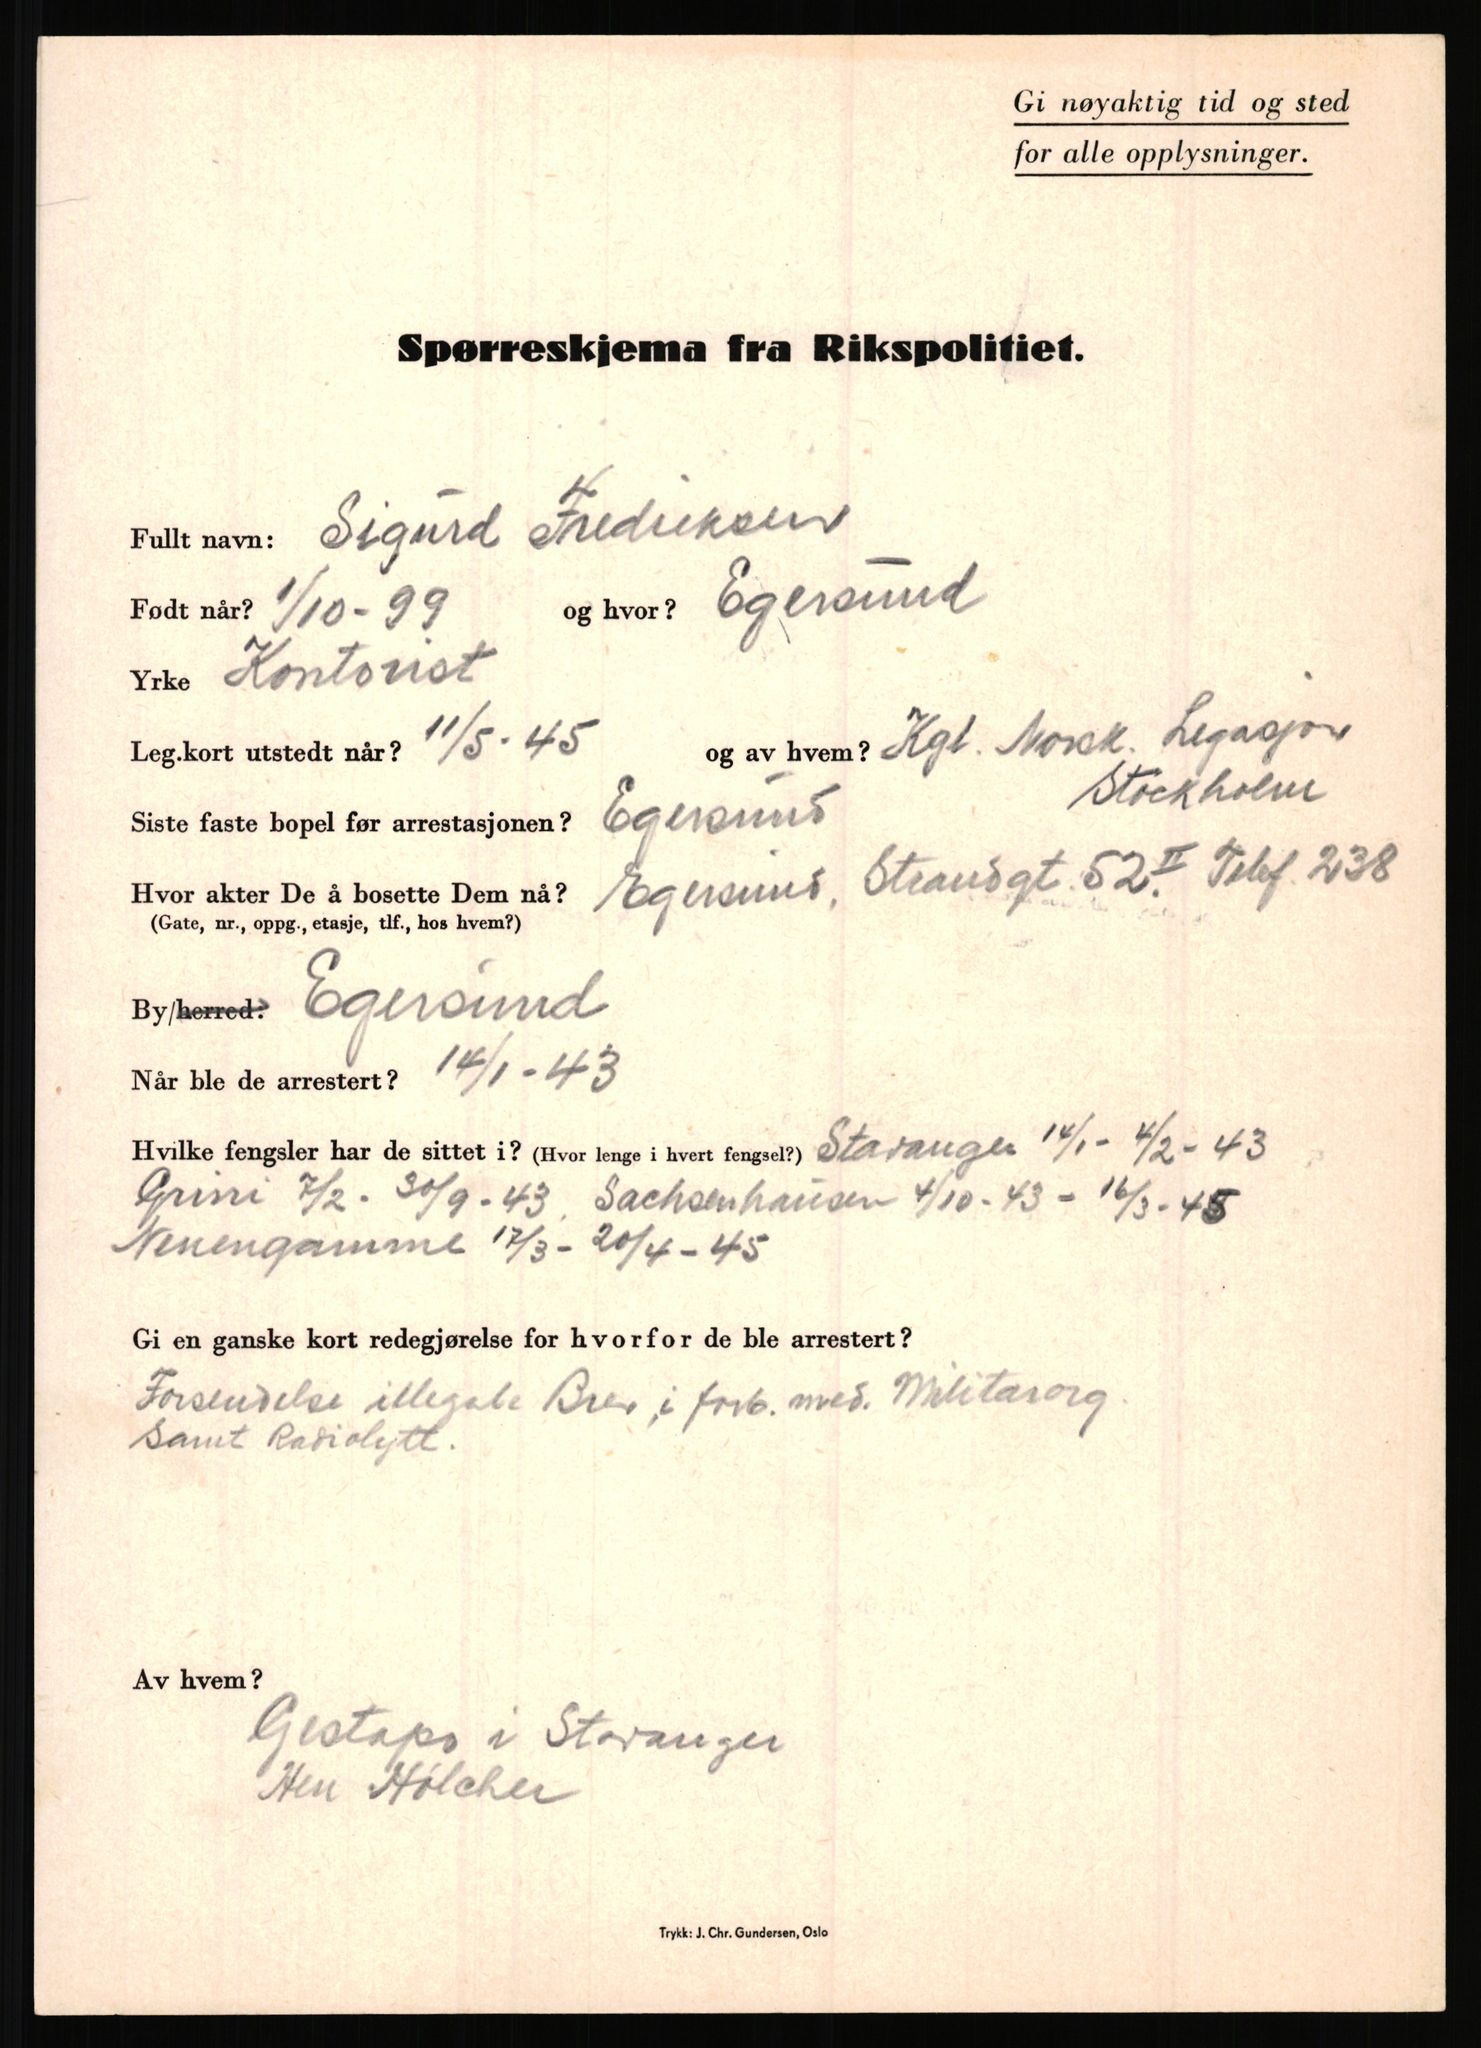 Gi nøyaktig tid og sted
for alle opplysninger.
Spørreskjema fra Rikspolitiet.
Fullt navn: Sigurd Fredriksen
Født når? 1/10-99 og hvor? Egersund
Yrke Kontorist
Leg.kort utstedt når? 11/5-45 og av hvem? Kgl. Norsk. Legasjon
Stockholm
Siste faste bopel før arrestasjonen? Egersund
Hvor akter De å bosette Dem nå? Egersund, Strandgt. 52.II Telef. 238
(Gate, nr., oppg., etasje, tlf., hos hvem?)
By/herred? Egersund
Når ble de arrestert? 14/1-43
Hvilke fengsler har de sittet i? (Hvor lenge i hvert fengsel?) Stavanger 14/1- 4/2-43
Grini 7/2-30/9-43, Sachsenhausen 4/10-43-16/3-45
Neuengamme 17/3-20/4-45
Gi en ganske kort redegjørelse for hvorfor de ble arrestert?
Forsendelse illegale Brev, i forb. med. Militærorg.
Samt Radiolytt.
Av hvem?
Gestapo i Stavanger
Herr Hölcher
Trykk: J. Chr. Gundersen, Oslo